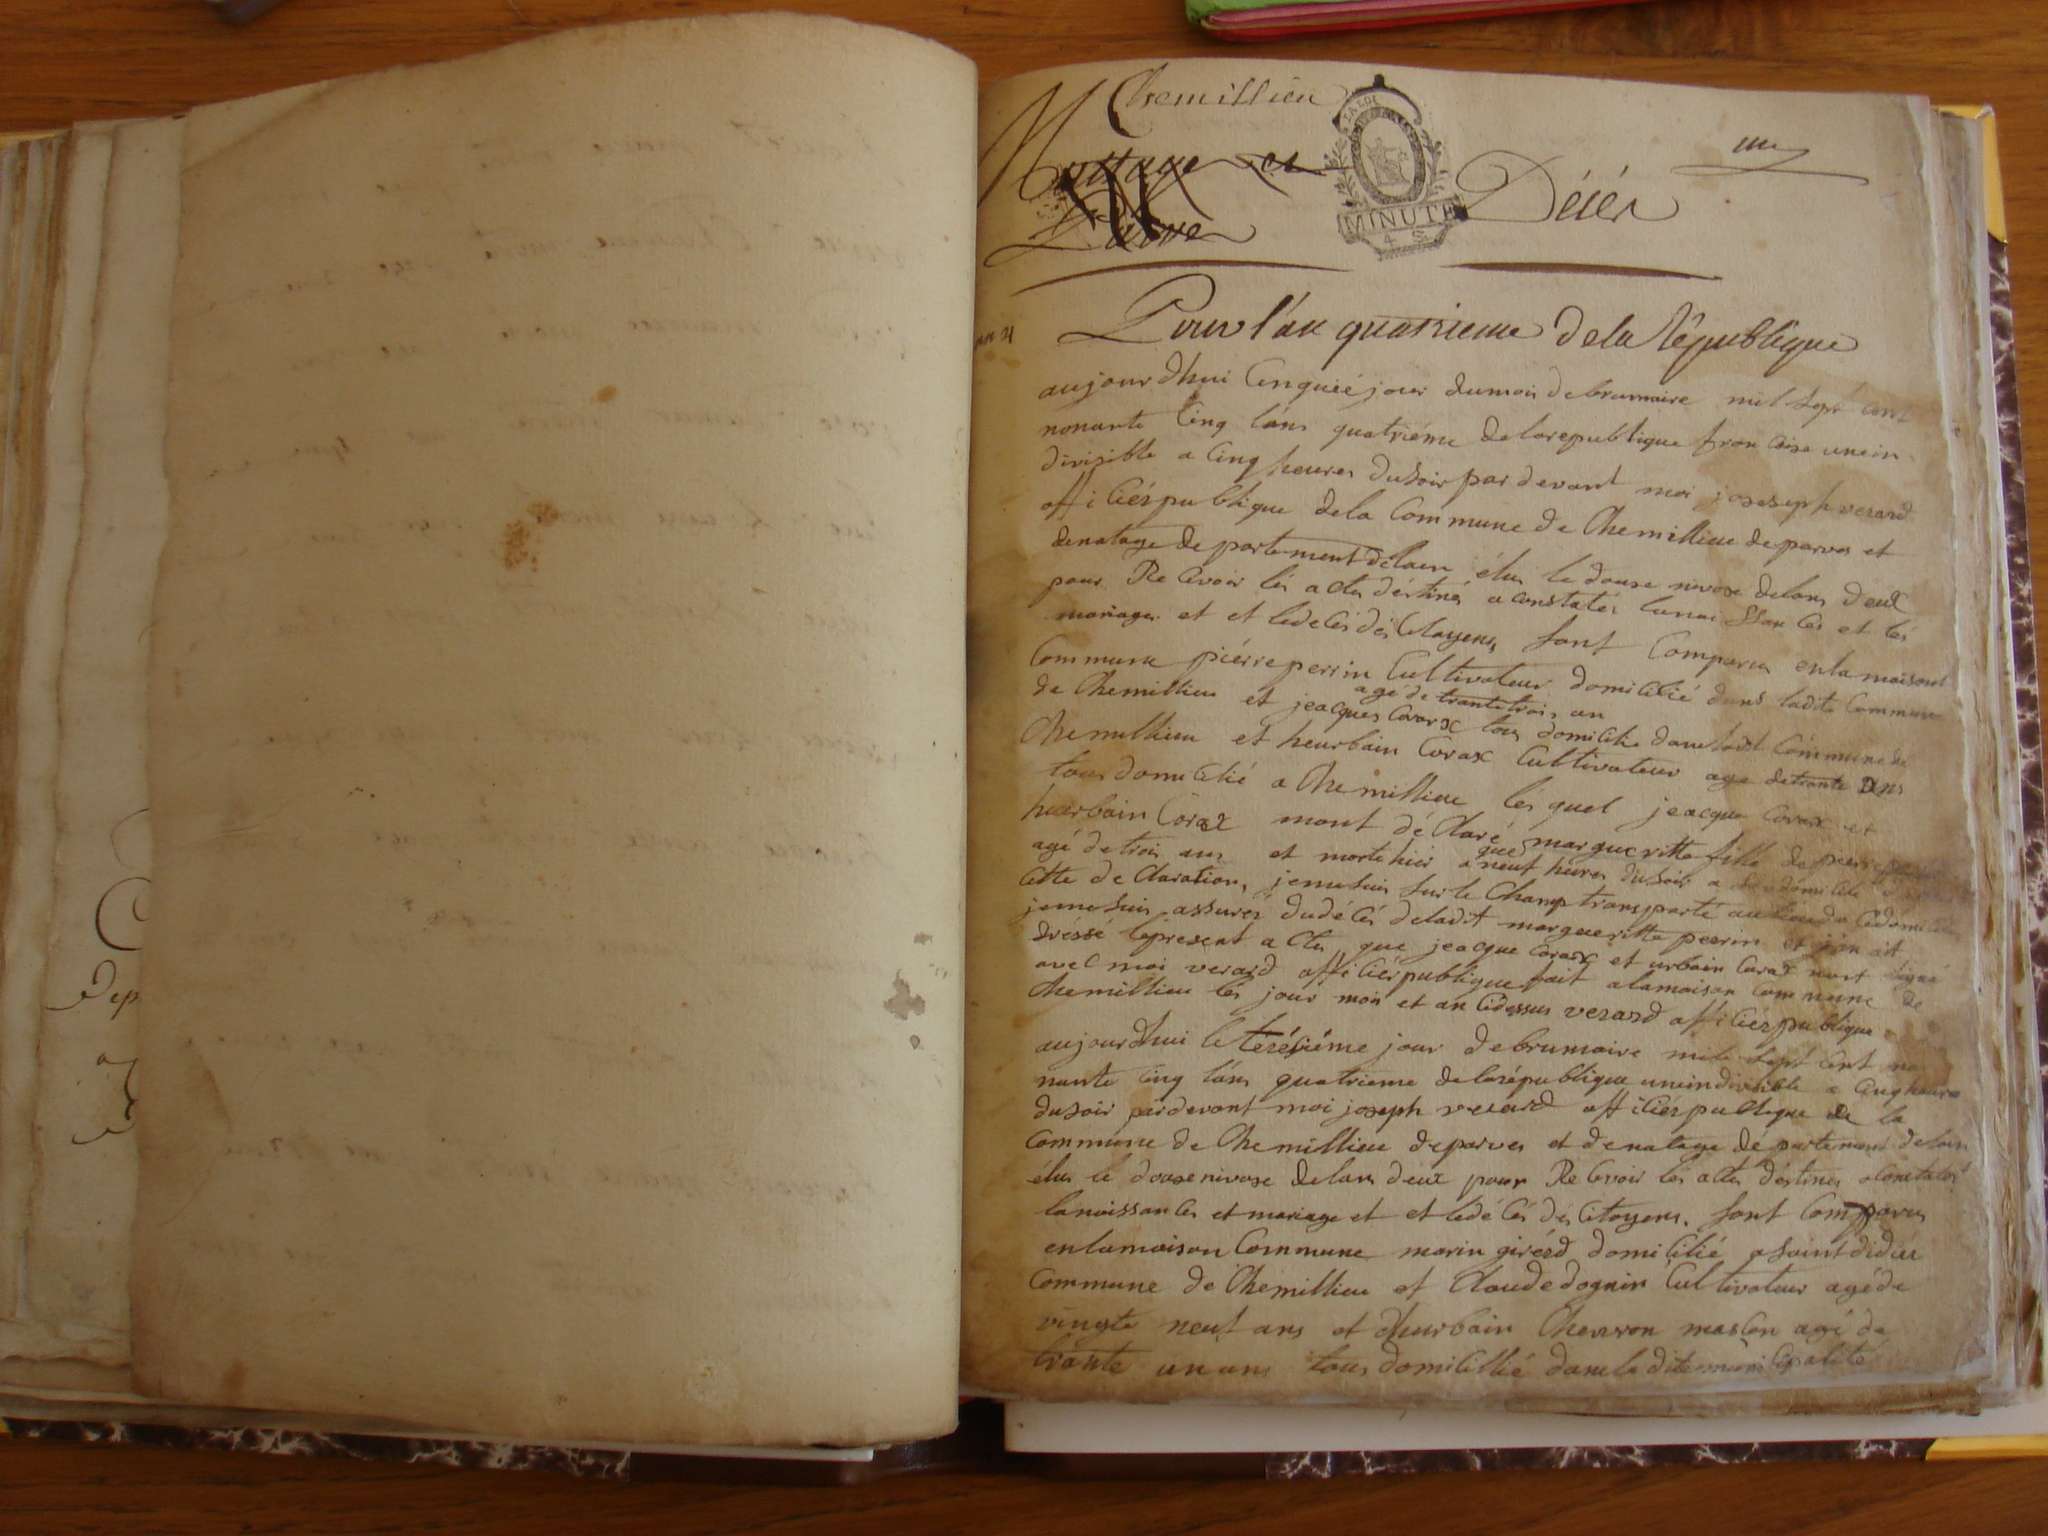 Chemillieu
LA LOI
MINUTE
4 S
Décés
Pour l'an quatrieme de la République
aujourdhui Cinquiéjour dumois de brumaire mil sept cent
nonante Cinq láns quatriéme delarepublique francaise unein
divisible a Cinq heures dusoir par devant moi joseseph verard
officiér publique dela Commune de Chemillieu deparves et
denatage departement delaen élus le douse nivose delans deux
pour Recevoir lés actes déstinés a constatér
mariages et et ledecés dés Citoyens, sont Comparus enlamaisont
Commune piérre perrin Cultivateur domicilié dans ladite Commune
age de trante trois an
de Chemillieu et jeacques Corax tous domicilié Commune de
Chemillieu et heurbain Corax Cultivateur age detrante ans
tous domicilié a Chemillieu lés quel jeacque Corax et
heurbain Corax mont déClaré margueritte fille de pierre
que
agé detrois ans et morte hier a neuf heures dusoir a
Cette deClaration, jemesuis sur le Champ transporté au lieu de Cedomicile
jemesuis assurér dudécés deladit margueritte perrin et jén ait
dréssé lepresent actes que jeacque Corax et urbain Corax nont signé
avec moi verard officiér publique fait alamaison Commune de
Chemillieu lés jour mois et an cidessus verard officiér publique
aujourdhui le jour debrumaire mile sept cent no
nante Cinq láns quatrieme delarépublique uneindivisible a Cinq heures
dusoir pardevant moi joseph verard officiér publique de la
Commune de Chemillieu deparves et denatage départemant delaen
élus le douse nivose delans deux pour Recevoir lés actes déstinés aConstatér
lanaissances et mariage et et ledécés dés Citoyens. sont Comparus
enlamaison Commune marin girérd domicilié a saint didier
Commune de Chemillieu et Claude dognin Cultivateur agéde
vingte neuf ans et dheurbain Chevron mason agé de
trante un ans tous domicillié dans laditemunicipalité